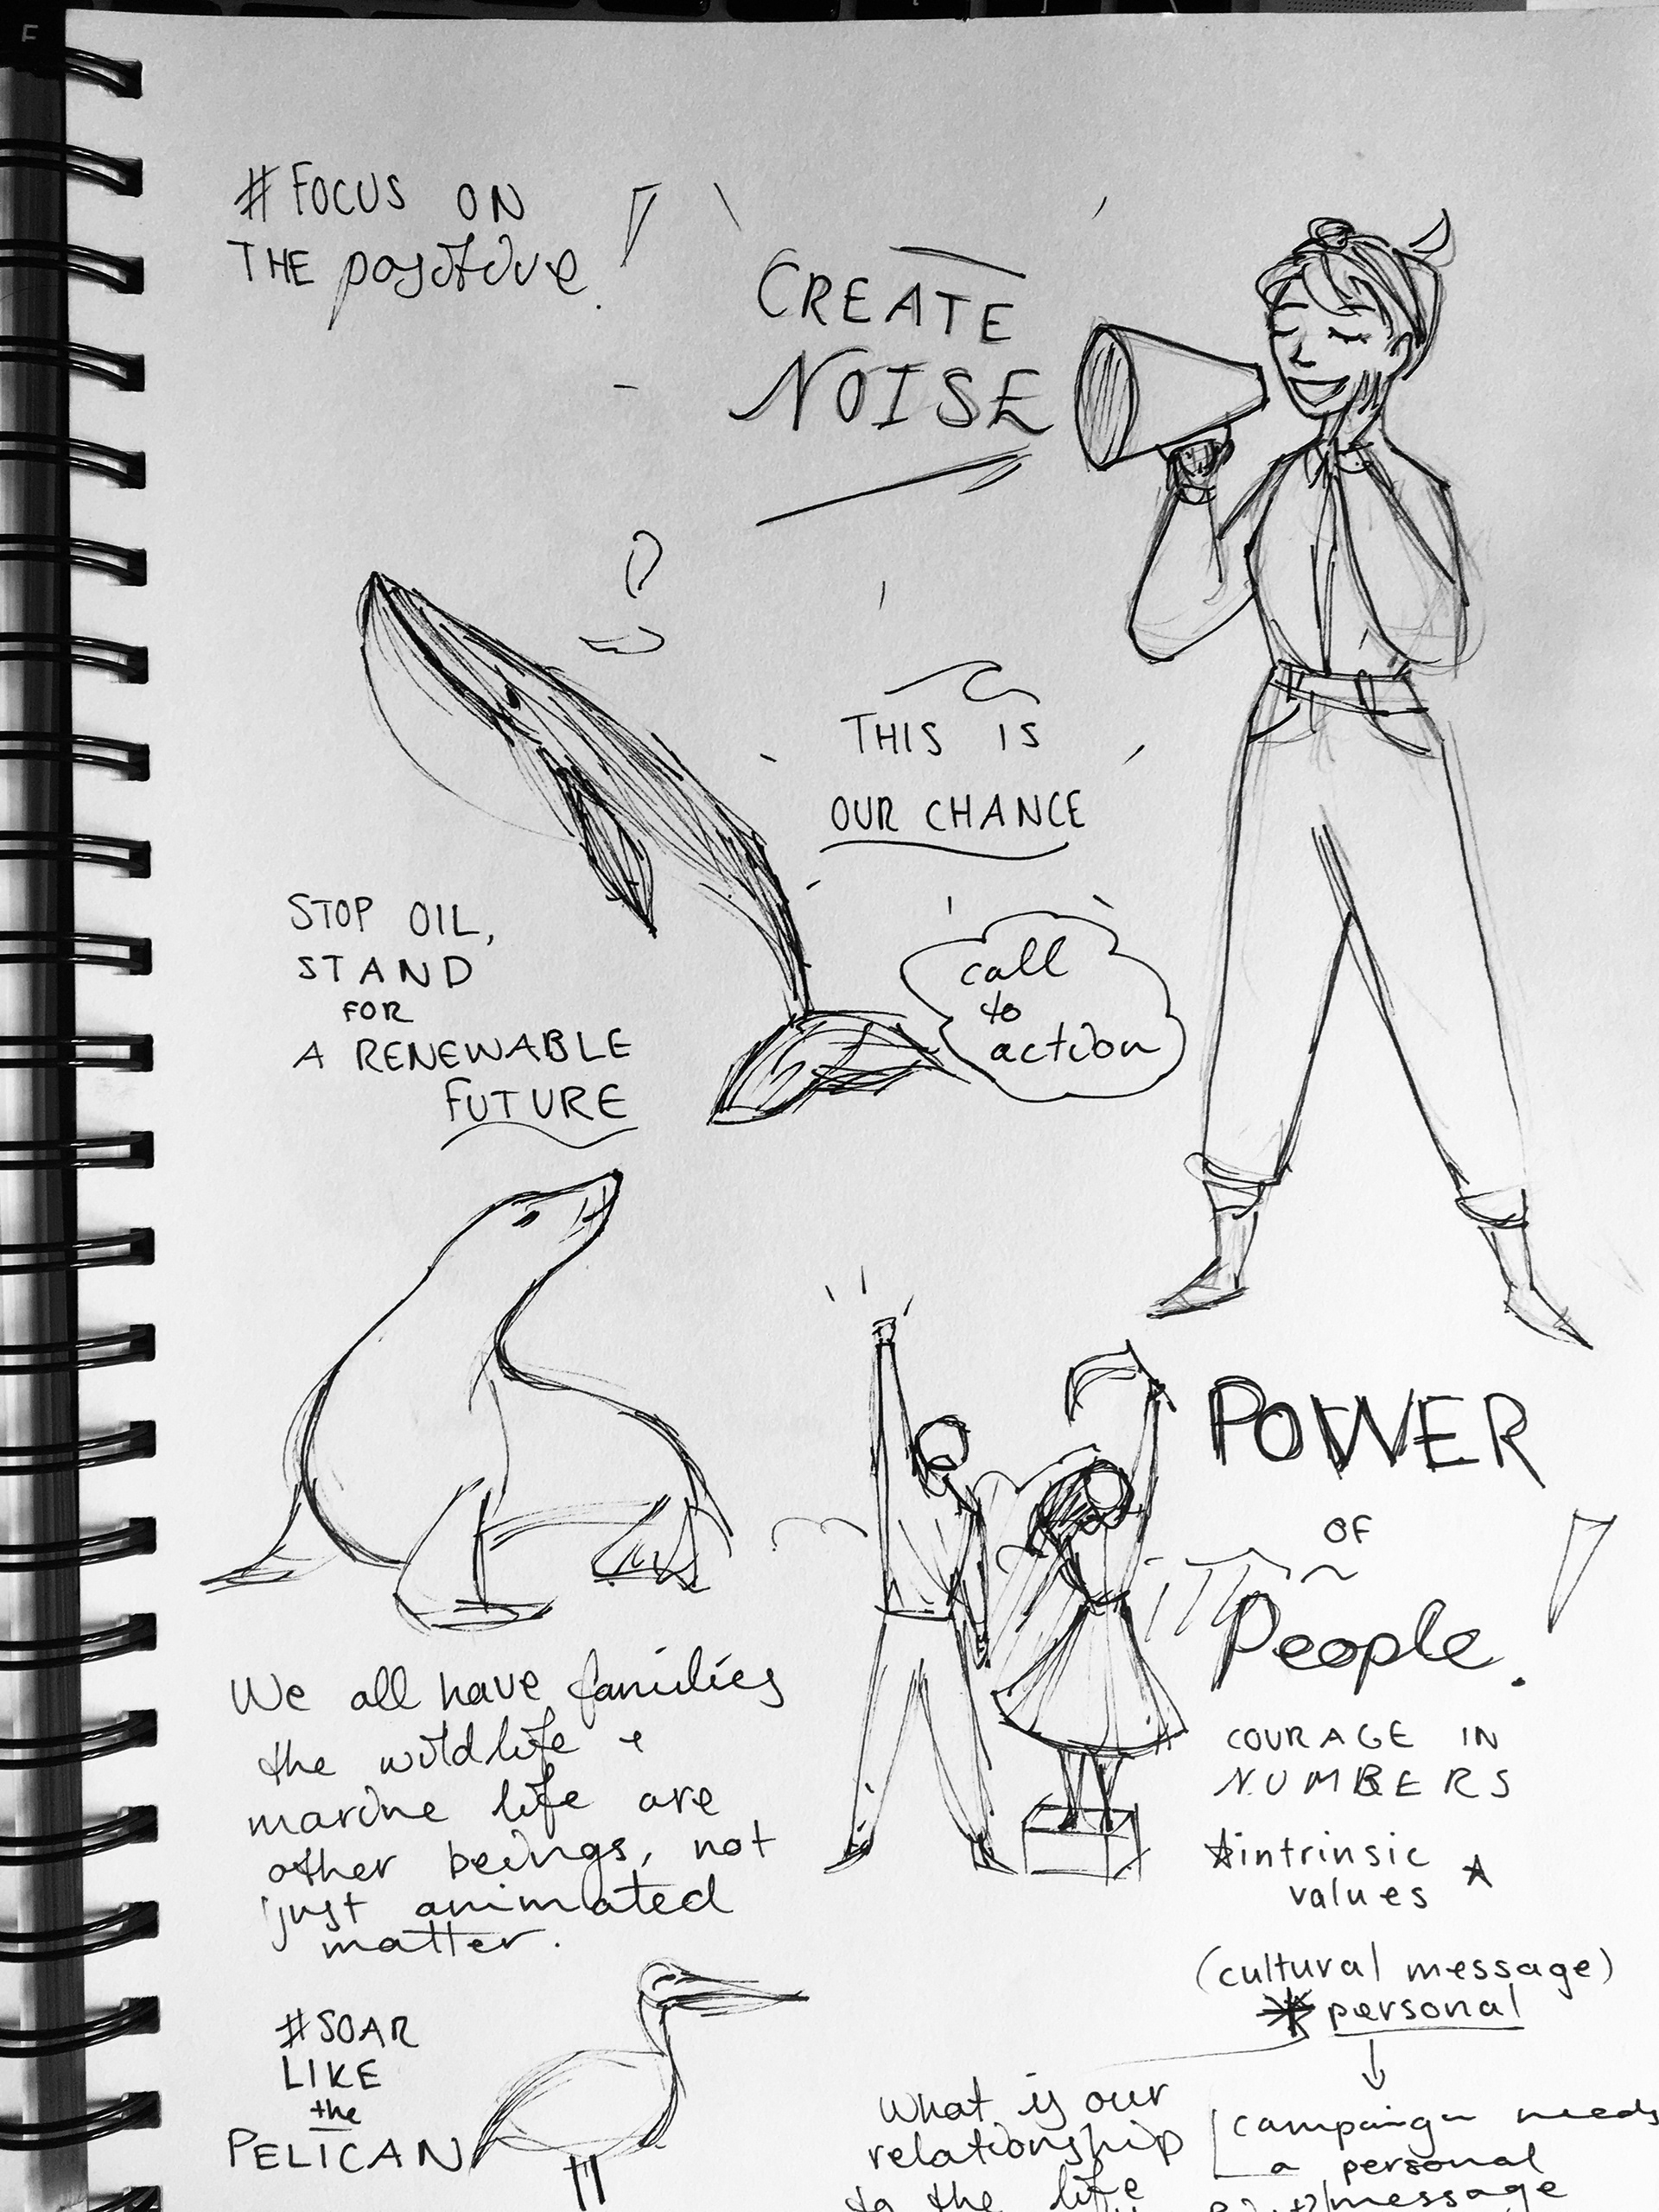 # FOCUS ON
THE positive!
CREATE
NOISE
THIS IS
OUR CHANCE
STOP OIL,
STAND
FOR
A RENEWABLE
FUTURE
call
to
action
POWER
OF
People.
COURAGE IN
NUMBERS
intrinsic
values
(cultural message)
personal
We all have families
the wildlife +
marine life are
other beings, not
just animated
matter.
#SOAR
LIKE
the
PELICAN
What is our
relationship
to the life
campaign needs
a personal
message